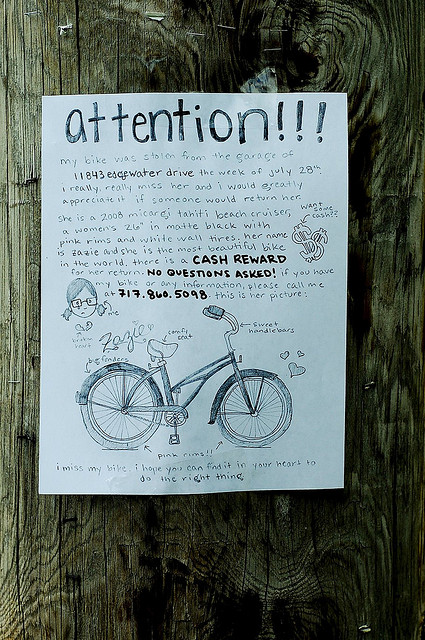 attention!!!
my bike was stolen from the garage of
11843 edgewater drive the week of july 28th.
i really, really miss her and i would greatly
appreciate it if someone would return her.
she is a 2008 micargi tahiti beach cruiser,
a womens 26" in matte black with
pink rims and white wall tires. her name
is zazie and she is the most beautiful bike
in the world. there is a CASH REWARD
for her return. NO QUESTIONS ASKED! if you have
my bike or any information, please call me
at 717.860.5098. this is her picture:
want some cash??
$
me
broken heart
zazie
comfy seat
sweet handlebars
fenders
pink rims!!
i miss my bike. i hope you can find it in your heart to
do the right thing.